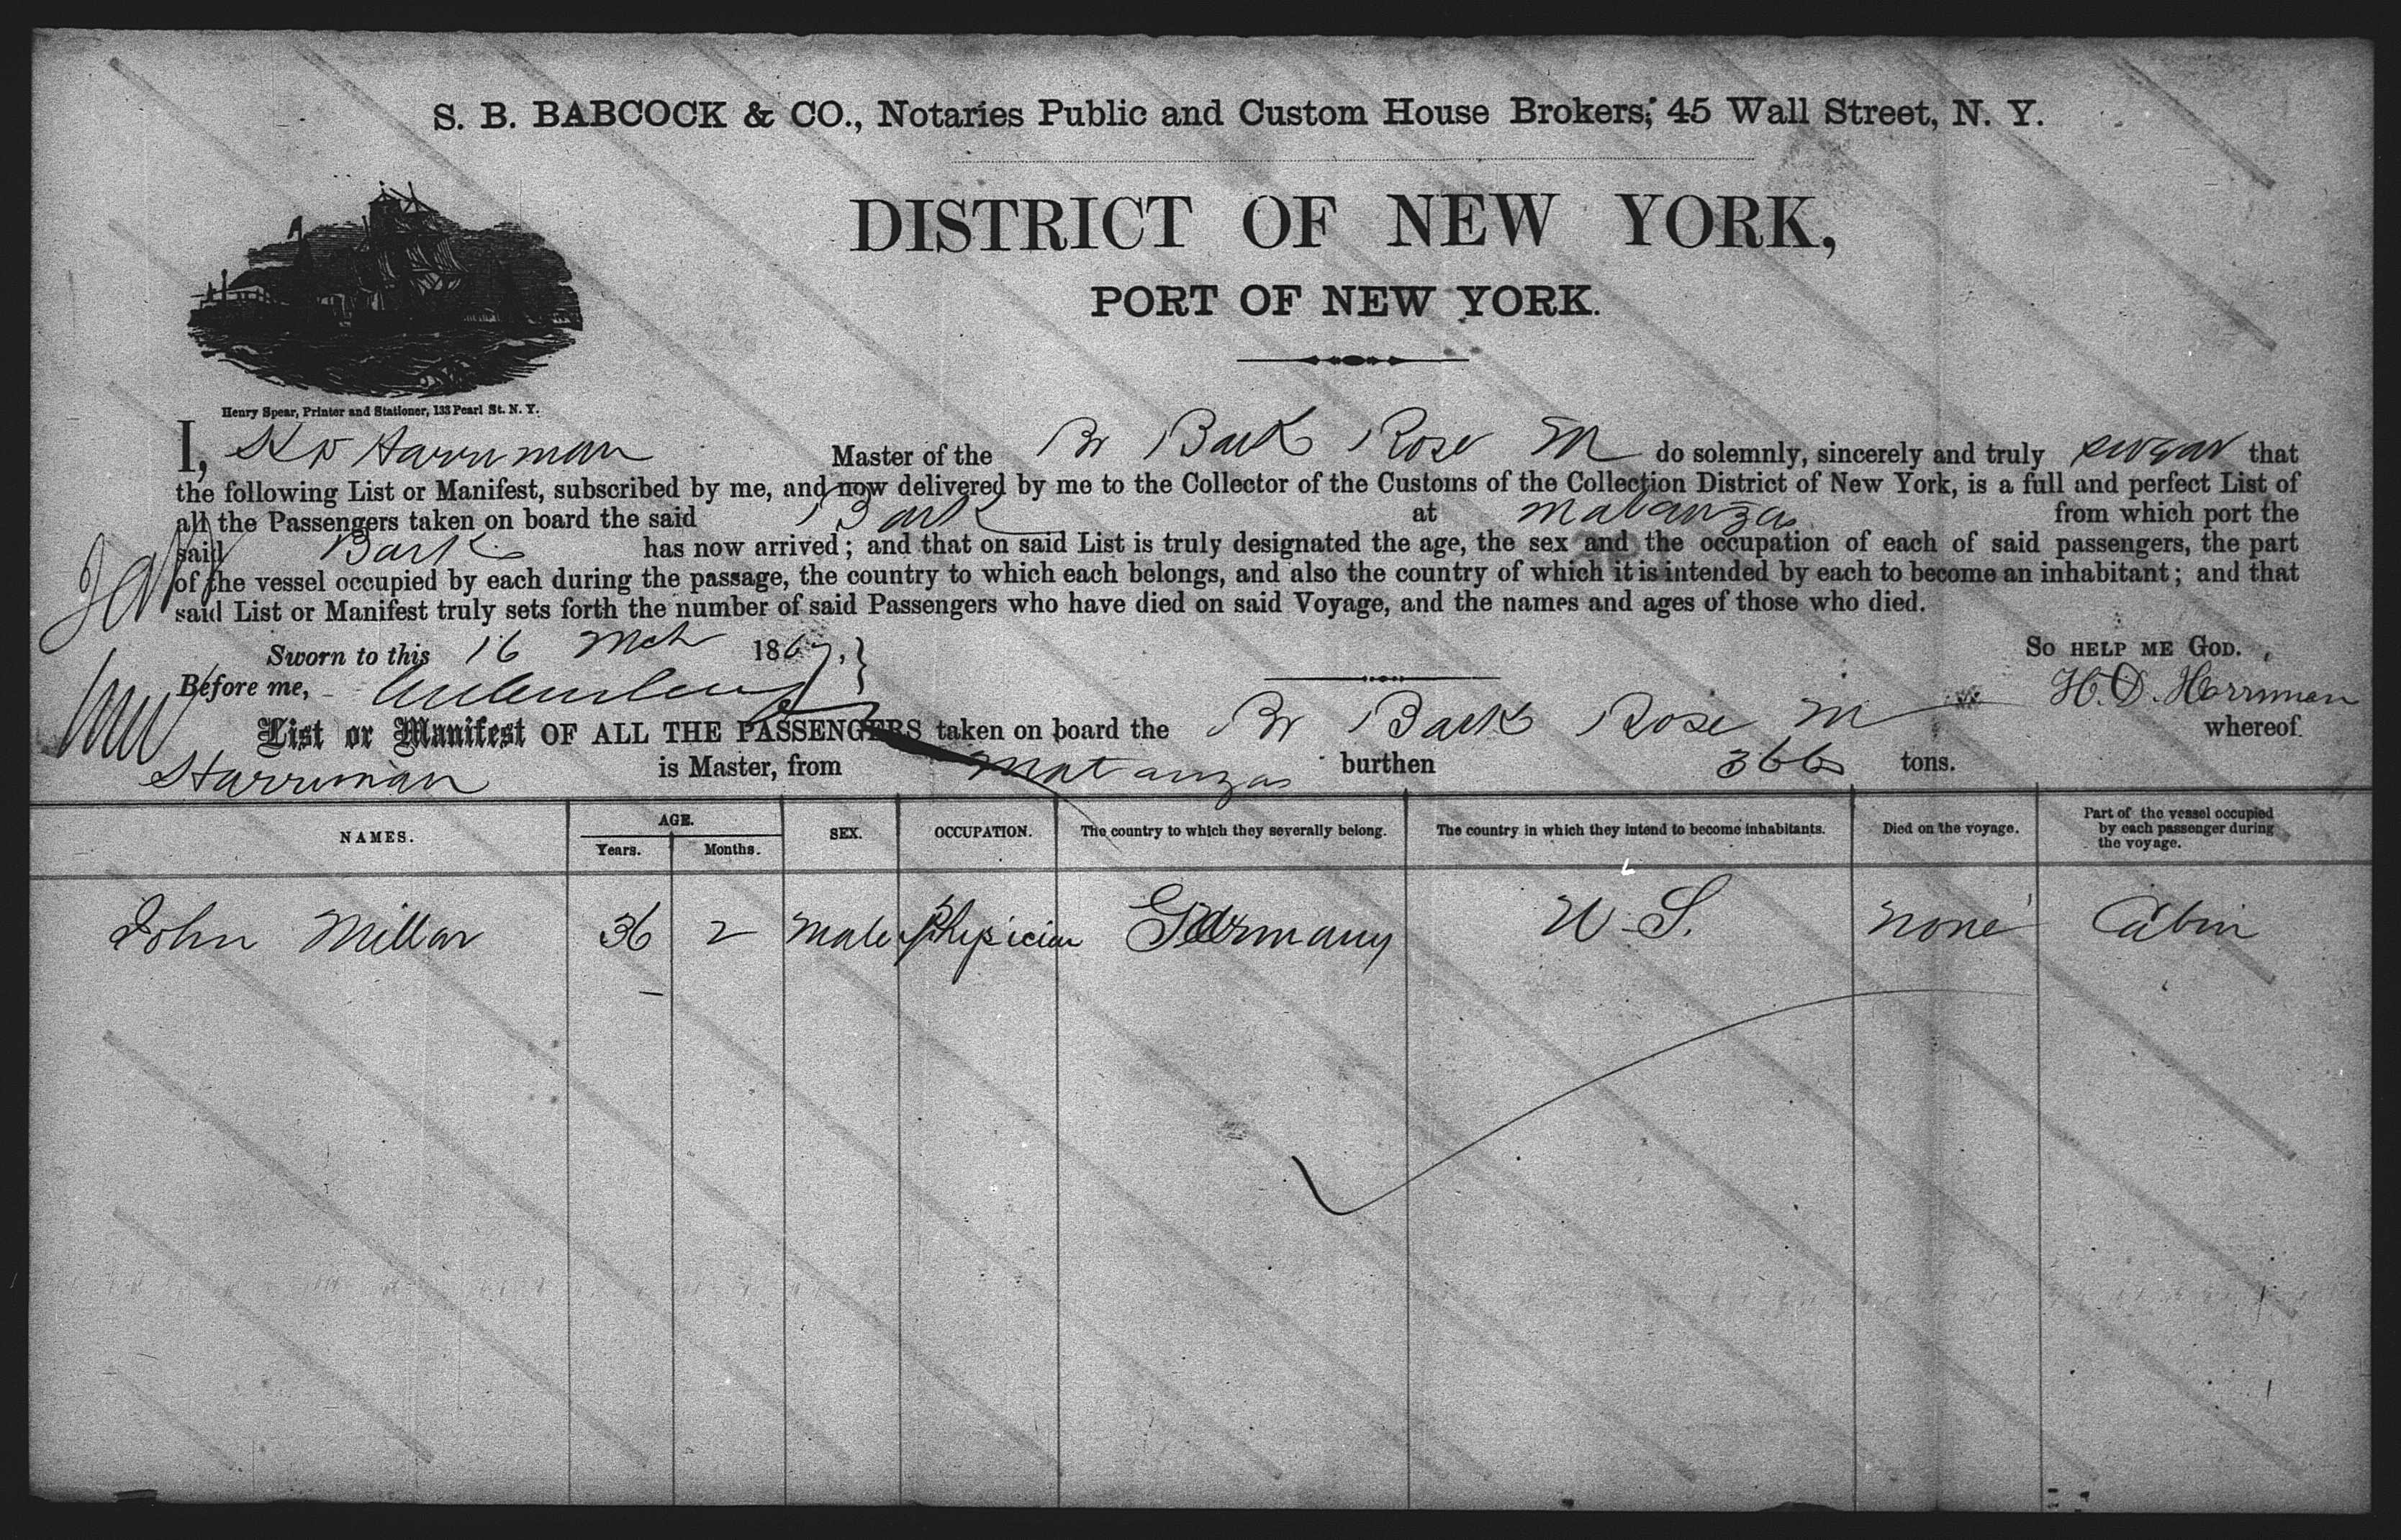 S. B. BABCOCK & CO., Notaries Public and Custom House Brokers, 45 Wall Street, N. Y.
DISTRICT OF NEW YORK,
PORT OF NEW YORK.
Henry Spear, Printer and Stationer, 133 Pearl St. N. Y.
I, H D Harriman Master of the Br Bark Rose M do solemnly, sincerely and truly swear that
the following List or Manifest, subscribed by me, and now delivered by me to the Collector of the Customs of the Collection District of New York, is a full and perfect List of
all the Passengers taken on board the said Bark at Matanzas from which port the
said Bark has now arrived; and that on said List is truly designated the age, the sex and the occupation of each of said passengers, the part
of the vessel occupied by each during the passage, the country to which each belongs, and also the country of which it is intended by each to become an inhabitant; and that
said List or Manifest truly sets forth the number of said Passengers who have died on said Voyage, and the names and ages of those who died.
Sworn to this 16 Mch 1867, SO HELP ME GOD.
Before me, H. D. Harriman
List or Manifest OF ALL THE PASSENGERS taken on board the Br Bark Rose M whereof
Harriman is Master, from Matanzas burthen 366 tons.
NAMES. AGE. Years. Months. SEX. OCCUPATION. The country to which they severally belong. The country in which they intend to become inhabitants. Died on the voyage. Part of the vessel occupied by each passenger during the voyage.
John Millar 36 2 Male Phisician Germany U. S. None Cabin